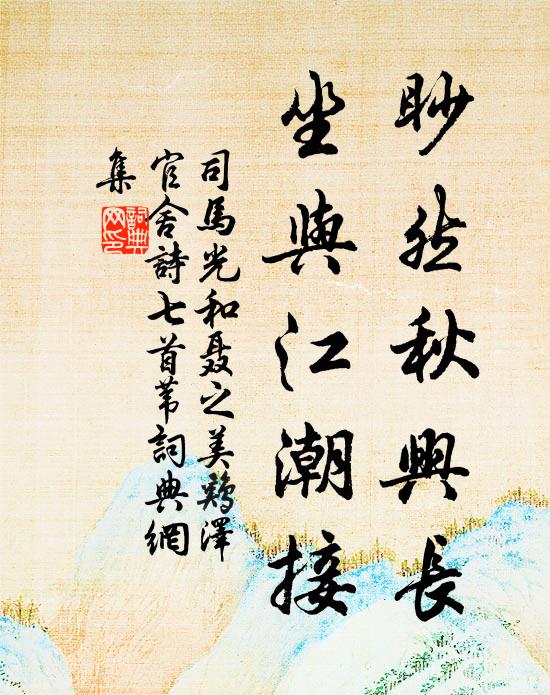 眇然秋興長
坐與江潮接
司馬光和聶之美鷄澤
官舍詩七首葦詞典網
集
詞典網印